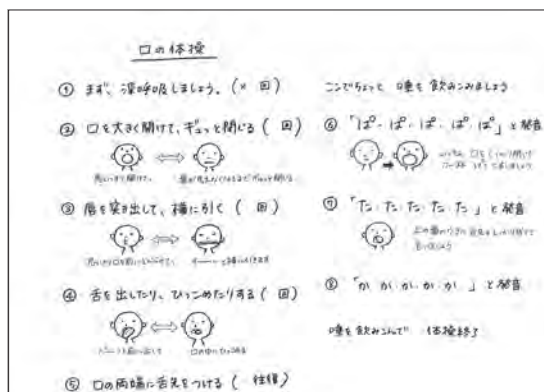 口の体操
① まず、深呼吸しましょう。(× 回)
② 口を大きく開けて、ギュッと閉じる ( 回)
思いっきり開けて、
唇が見えなくなるまでギュッと閉じる
③ 唇を突き出して、横に引く ( 回)
④ 舌を出したり、ひっこめたりする ( 回)
口の中にひっこめる
⑤ 口の両端に舌先をつける ( 往復)
ここでちょっと 唾を飲みこみましょう
⑥ 「ぱ・ぱ・ぱ・ぱ・ぱ」と発音
⑦ 「た・た・た・た・た」と発音
⑧ 「か・か・か・か・か」と発音
唾を飲みこんで 体操終了